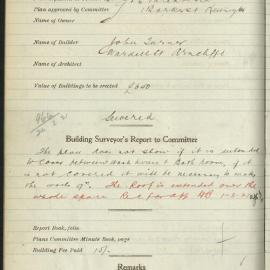 Plan approved by Committee
Name of Owner
Name of Builder John Turner
Wardell St Arncliffe
Name of Architect
Value of Buildings to be erected £640
Sewered
Building Surveyor's Report to Committee
The plan does not show if it is intended
to cover between and Bath room, if it
is not covered it will be necessary to make
the walls 9". The Roof is extended over the
whole space
Report Book, folio
Plans Committee Minute Book, page
Building Fee Paid 15/-
Remarks